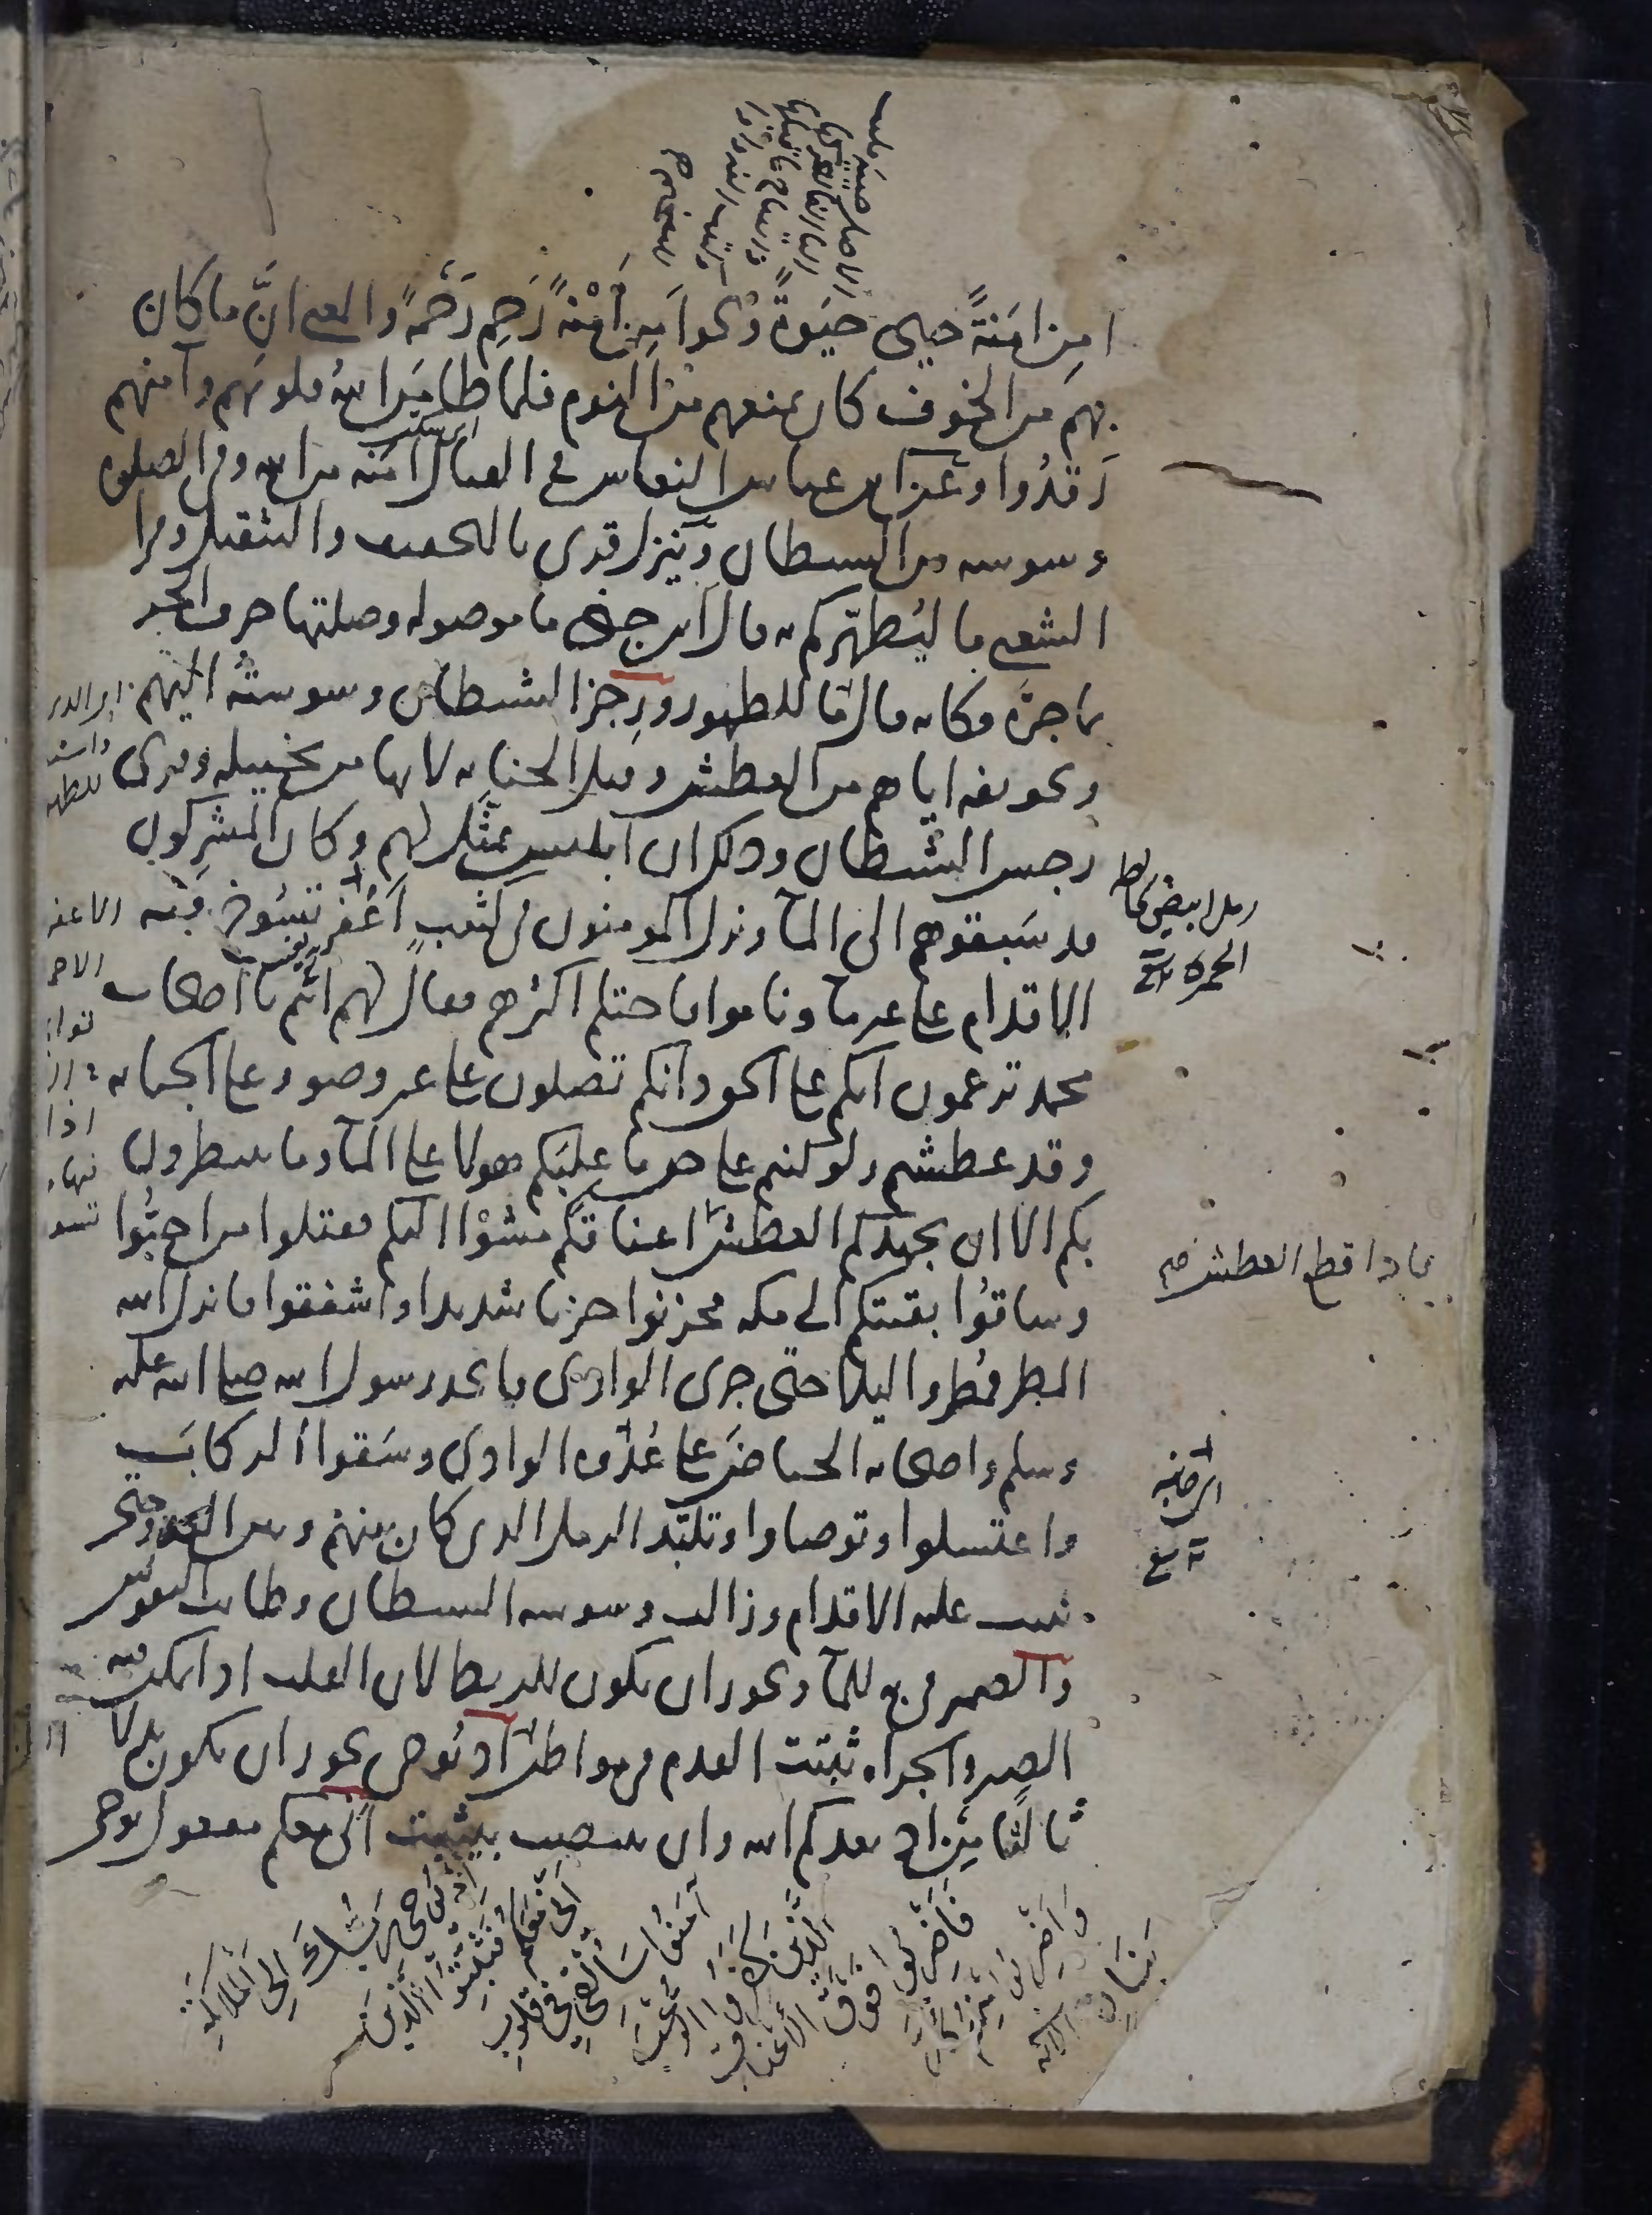 امن امنة حيي حيوة ونحوا من امنة رحم رحمة والمعنى ان ما كان
بهم من الخوف كان يمنعهم من النوم فلما طامن الله قلوبهم وآمنهم
رقدوا وعن ابن عباس النعاس في القتال امنة من الله وفي الصلوة
وسوسة من الشيطان وينزل قرى بالتخفيف والتثقيل وقرا
الشعبي ما ليطهركم به قال ابن جني ما موصولة وصلتها حرف الجر
بما جره فكانه قال ما للطهور ورجز الشيطان وسوسته اليهم
وتخويفه اياهم من العطش وقيل الجنابة لانها من تخييله وقرى
رجس الشيطان وذلك ان ابليس تمثل لهم وكان المشركون
قد سبقوهم الى الماء ونزل المومنون في كثيب اعفر تسوخ فيه
الاقدام على غير ماء وناموا فاحتلم اكثرهم فقال لهم انتم يا اصحاب
محمد تزعمون انكم على الحق وانكم تصلون على غير وضوء وعلى الجنابة
وقد عطشتم ولو كنتم على حق ما غلبكم هولا على الماء وما ينتظرون
بكم الا ان يجهدكم العطش فاذا قطع العطش اعناقكم مشوا اليكم فقتلوا من احبوا
وساقوا بقيتكم الى مكة فحزنوا حزنا شديدا واشفقوا فانزل الله
المطر فمطروا ليلا حتى جرى الوادي واتخذ رسول الله صلى الله عليه
وسلم واصحابه الحياض على عدوة الوادي وسقوا الركاب
واغتسلوا وتوضاوا وتلبد الرمل الذي كان بينهم وبين العدو حتى
ثبتت عليه الاقدام وزالت وسوسة الشيطان وطابت النفوس
والضمير في به للماء ويجوز ان يكون للربط لان القلب اذا تمكن فيه
الصبر والجراة ثبتت القدم في مواطن اذ يوحى يجوز ان يكون بدلا
ثالثا من اذ يعدكم الله وان ينتصب بيثبت اني معكم مفعول يوحى
رمل ابيض يخالط
الحمرة
اذ يوحي ربك الى الملائكة
اني معكم فثبتوا الذين
آمنوا سالقي في قلوب
الذين كفروا الرعب
فاضربوا فوق الاعناق
واضربوا منهم كل
بنان الاية